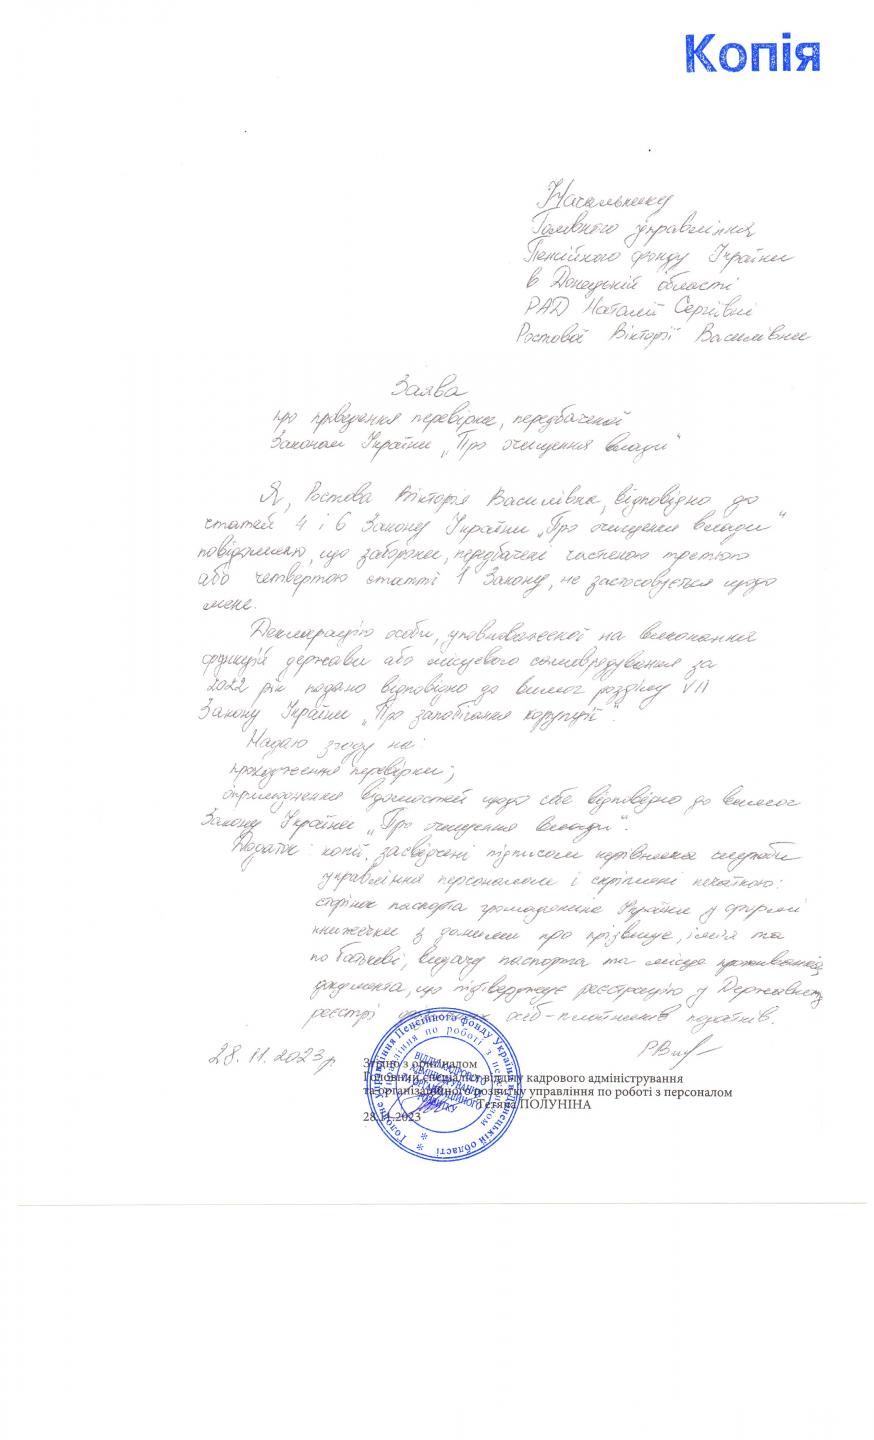 Копія
Начальнику
Головного управління
Пенсійного фонду України
в Донецькій області
РАД Наталії Сергіївні
Ростової Вікторії Василівни
Заява
про проведення перевірки, передбаченої
Законом України „Про очищення влади“
Я, Ростова Вікторія Василівна, відповідно до
статей 4 і 6 Закону України „Про очищення влади“
повідомляю, що заборони, передбачені частиною третьою
або четвертою статті 1 Закону, не застосовується щодо
мене.
Декларацію особи, уповноваженої на виконання
функцій держави або місцевого самоврядування за
2022 рік подано відповідно до вимог розділу VII
Закону України „Про запобігання корупції“.
Надаю згоду на:
проходження перевірки;
оприлюднення відомостей щодо себе відповідно до вимог
Закону України „Про очищення влади“.
Додаток: копії, засвідчені підписом керівника служби
управління персоналом і скріплені печаткою:
сторінок паспорта громадянина України у формі
книжечки з даними про прізвище, ім'я та
по батькові, видачу паспорта та місце проживання,
документа, що підтверджує реєстрацію у Державному
реєстрі фізичних осіб-платників податків.
28.11.2023р.
Згідно з оригіналом
Головний спеціаліст відділу кадрового адміністрування
та організаційного розвитку управління по роботі з персоналом
Тетяна ПОЛУНІНА
28.11.2023
Головне управління Пенсійного фонду України в Донецькій області
управління по роботі з персоналом
ВІДДІЛ КАДРОВОГО
АДМІНІСТРУВАННЯ
ТА ОРГАНІЗАЦІЙНОГО
РОЗВИТКУ